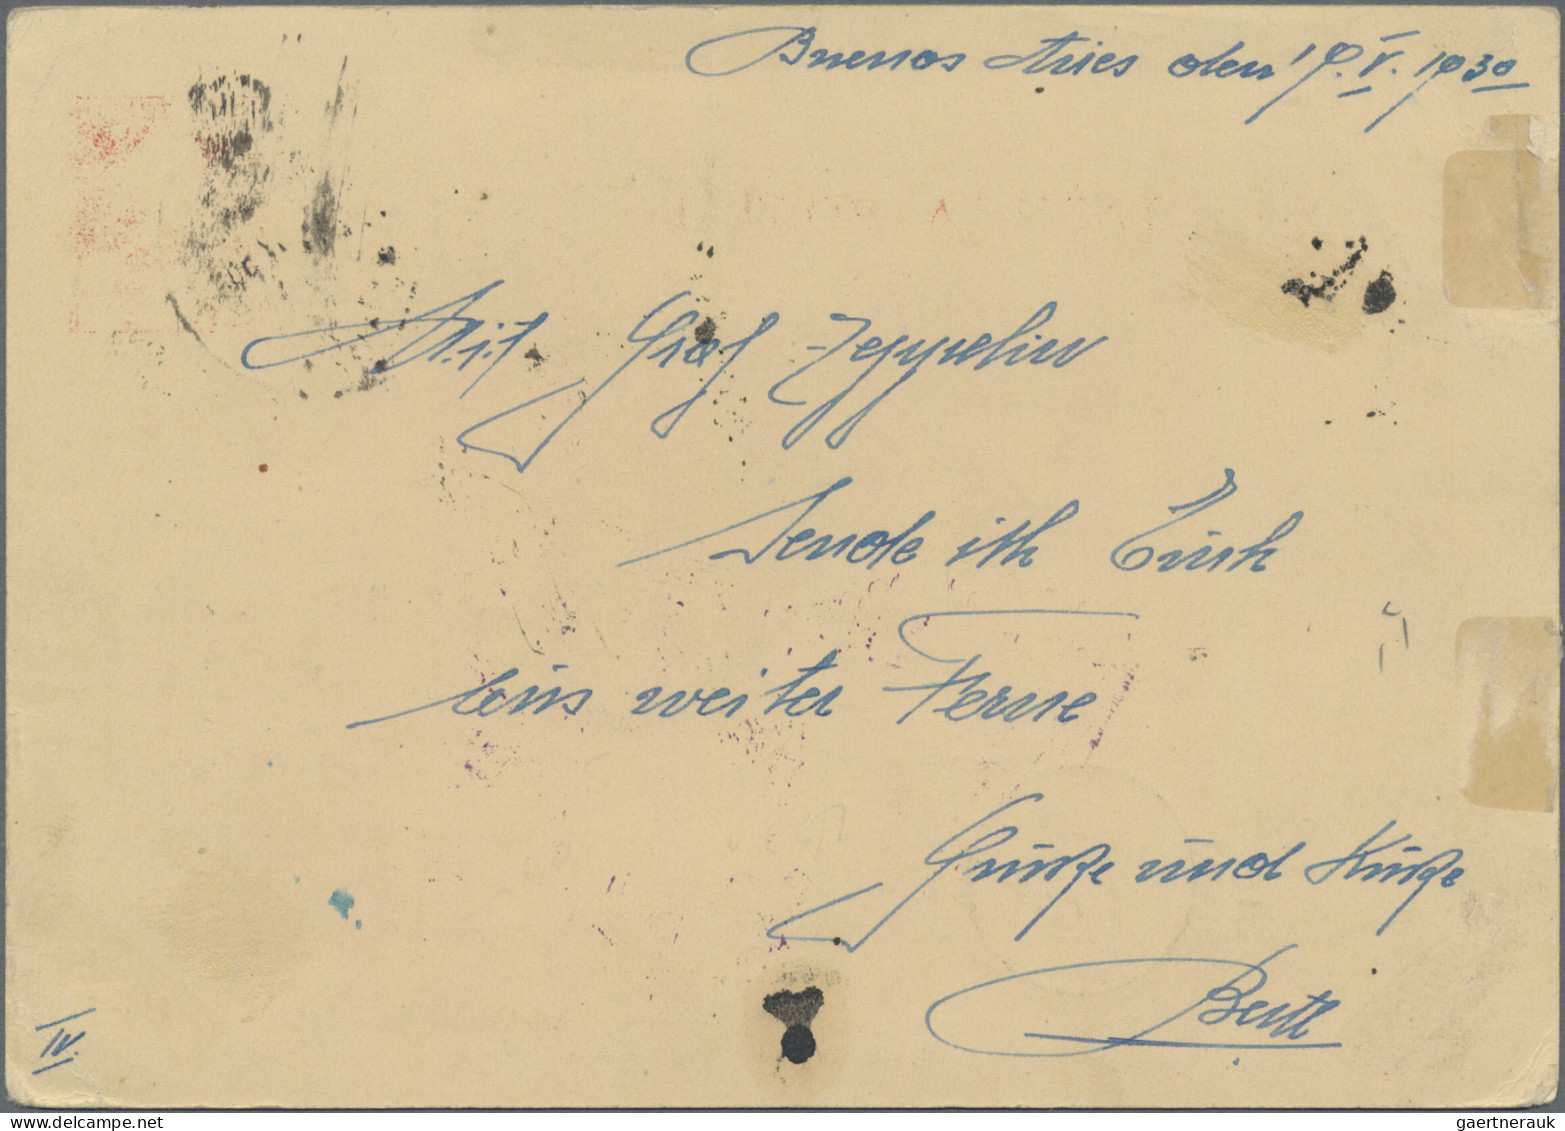 Buenos Aires den 19.V.1930
Mit Graf Zeppelin
Sende ich Euch
aus weiter Ferne
Grüße und Küße
Bertl
IV.
gaertnerauk